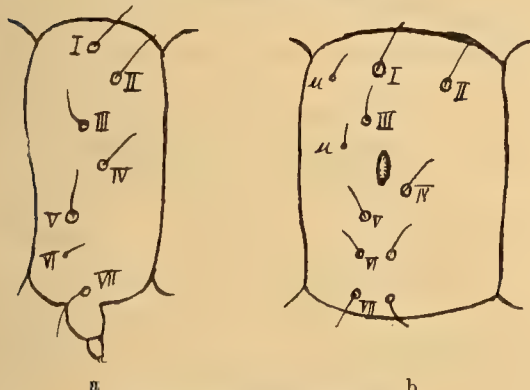 I
II
III
IV
V
VI
VII
a
μ
I
II
III
μ
IV
V
VI
VII
b